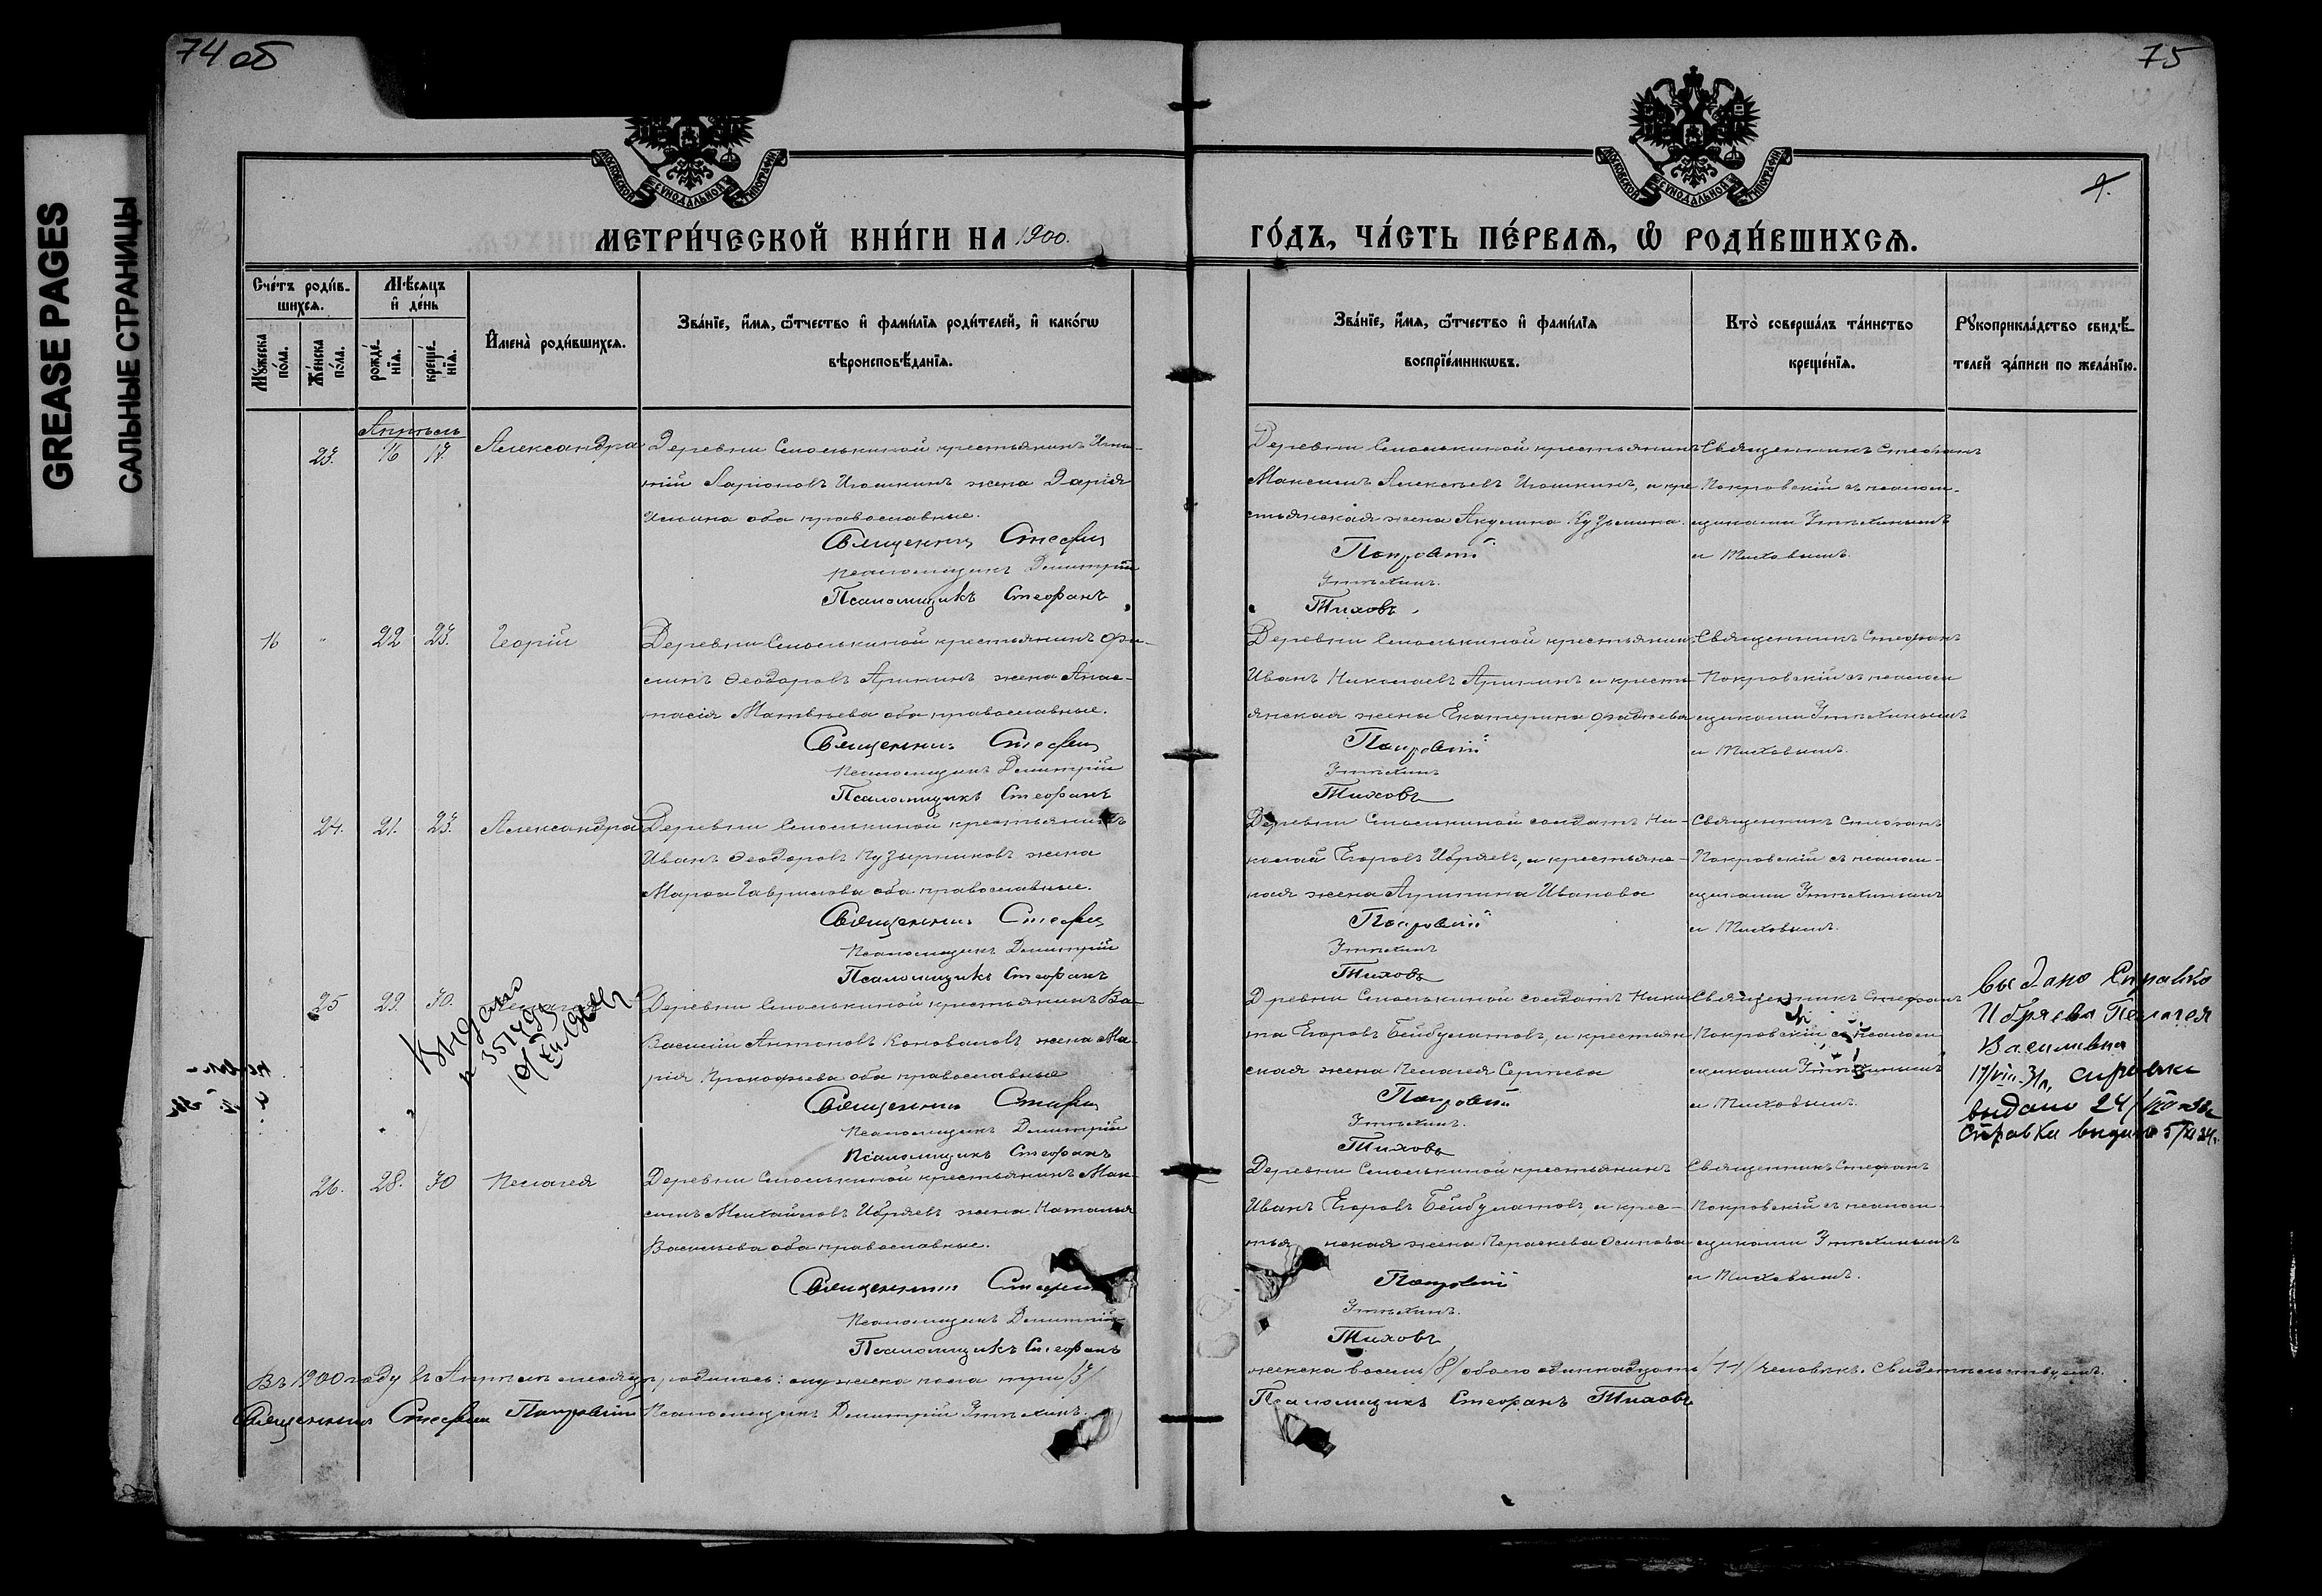 74 об
75
GREASE PAGES
САЛЬНЫЕ СТРАНИЦЫ
МОСКОВСКОЙ СѴНОДАЛЬНОЙ ТИПОГРАФІИ
МОСКОВСКОЙ СѴНОДАЛЬНОЙ ТИПОГРАФІИ
9.
МЕТРИ́ЧЕСКОЙ КНИ́ГИ НА 1900.
ГО́ДЪ, ЧА́СТЬ ПЕ́РВАѦ, Ѽ РОДИ́ВШИХСѦ.
Сче́тъ роди́в-
шихсѧ.
Мꙋ́жеска по́ла.
Же́нска по́ла.
Мѣ́сѧцъ
и҆ де́нь
рожде́-нїѧ.
креще́-нїѧ.
И҆мена̀ роди́вшихсѧ.
Зва́нїе, и҆́мѧ, ѻ҆́тчество и҆ фами́лїѧ роди́телей, и҆ како́гѡ
вѣроисповѣ́данїѧ.
Зва́нїе, и҆́мѧ, ѻ҆́тчество и҆ фами́лїѧ
воспрїе́мникѡвъ.
Кто̀ соверша́лъ та́инство
креще́нїѧ.
Рꙋкоприкла́дство свидѣ́-
телей за́писи по жела́нїю.
Апрѣль
23. 16 17. Александра
Деревни Смолькиной крестьянинъ
Ларіоновъ Игошкинъ жена Дарія
оба православные.
Священник Стефан
Псаломщикъ Димитрій
Псаломщикъ Стефанъ
Деревни Смолькиной крестьянинъ
Максимъ Алексѣевъ Игошкинъ, и кре
стьянская жена Акулина Кузьмина.
Покровскій
Утѣхинъ.
Тиховъ
Священникъ Стефанъ
Покровскій съ псалом-
щиками Утѣхинымъ
и Тиховымъ.
16 " 22 23. Георгій
Деревни Смолькиной крестьянинъ
Ѳеодоровъ жена Анас-
тасія Матвѣева оба православные.
Священник Стефан
Псаломщикъ Димитрій
Псаломщикъ Стефанъ
Деревни Смолькиной крестьянинъ
Иванъ Николаевъ и кресть
янская жена Екатерина
Покровскій
Утѣхинъ
Тиховъ
Священникъ Стефанъ
Покровскій съ псалом
щиками Утѣхинымъ
и Тиховымъ.
24. 21. 23. Александра
Деревни Смолькиной крестьянинъ
Иванъ Ѳеодоровъ жена
Марѳа Гаврилова оба православные.
Священник Стефан
Псаломщикъ Димитрій
Псаломщикъ Стефанъ
Деревни Смолькиной солдатъ Ни-
колай Егоровъ Ибряевъ, и крестьянс-
кая жена Иванова
Покровскій
Утѣхинъ
Тиховъ
Священникъ Стефанъ
Покровскій съ псалом-
щиками Утѣхинымъ
и Тиховымъ.
25 29. 30. Пелагея
Выдано
Деревни Смолькиной крестьянинъ Ва-
Василій Антоновъ Коноваловъ жена Ма-
рія Прокофьева оба православные
Священник Стефан
Псаломщикъ Димитрій
Псаломщикъ Стефанъ
Деревни Смолькиной солдатъ Ники
та Егоровъ Бейбулатовъ, и крестьян
ская жена Пелагея Сергѣева
Покровскій
Утѣхинъ.
Тиховъ
Священникъ Стефанъ
Покровскій съ псалом
щиками Утѣхинымъ
и Тиховымъ.
Выдано Справка
Ибряева Пелагея
Васильевна
справка
выдано 24/
Справка выдана
26. 28. 30 Пелагея
Деревни Смолькиной крестьянинъ Мак-
симъ Михайловъ Ибряевъ жена Наталья
Васильева оба православные.
Священник Стефан
Псаломщикъ Димитрій
Псаломщикъ Стефанъ
Деревни Смолькиной крестьянинъ
Иванъ Егоровъ Бейбулатовъ, и крес-
тьянская жена Параскева Осипова
Покровскій
Утѣхинъ.
Тиховъ
Священникъ Стефанъ
Покровскій съ псалом-
щиками Утѣхинымъ
и Тиховымъ.
Въ 1900 году въ Апрѣлѣ мѣсяцѣ родилось: мужеска пола три /3/ женска восемь /8/ обоего одиннадцать /11/ человѣкъ. Свидѣтельствуемъ.
Священник Стефан Покровскій Псаломщикъ Димитрій Утѣхинъ. Псаломщикъ Стефанъ Тиховъ